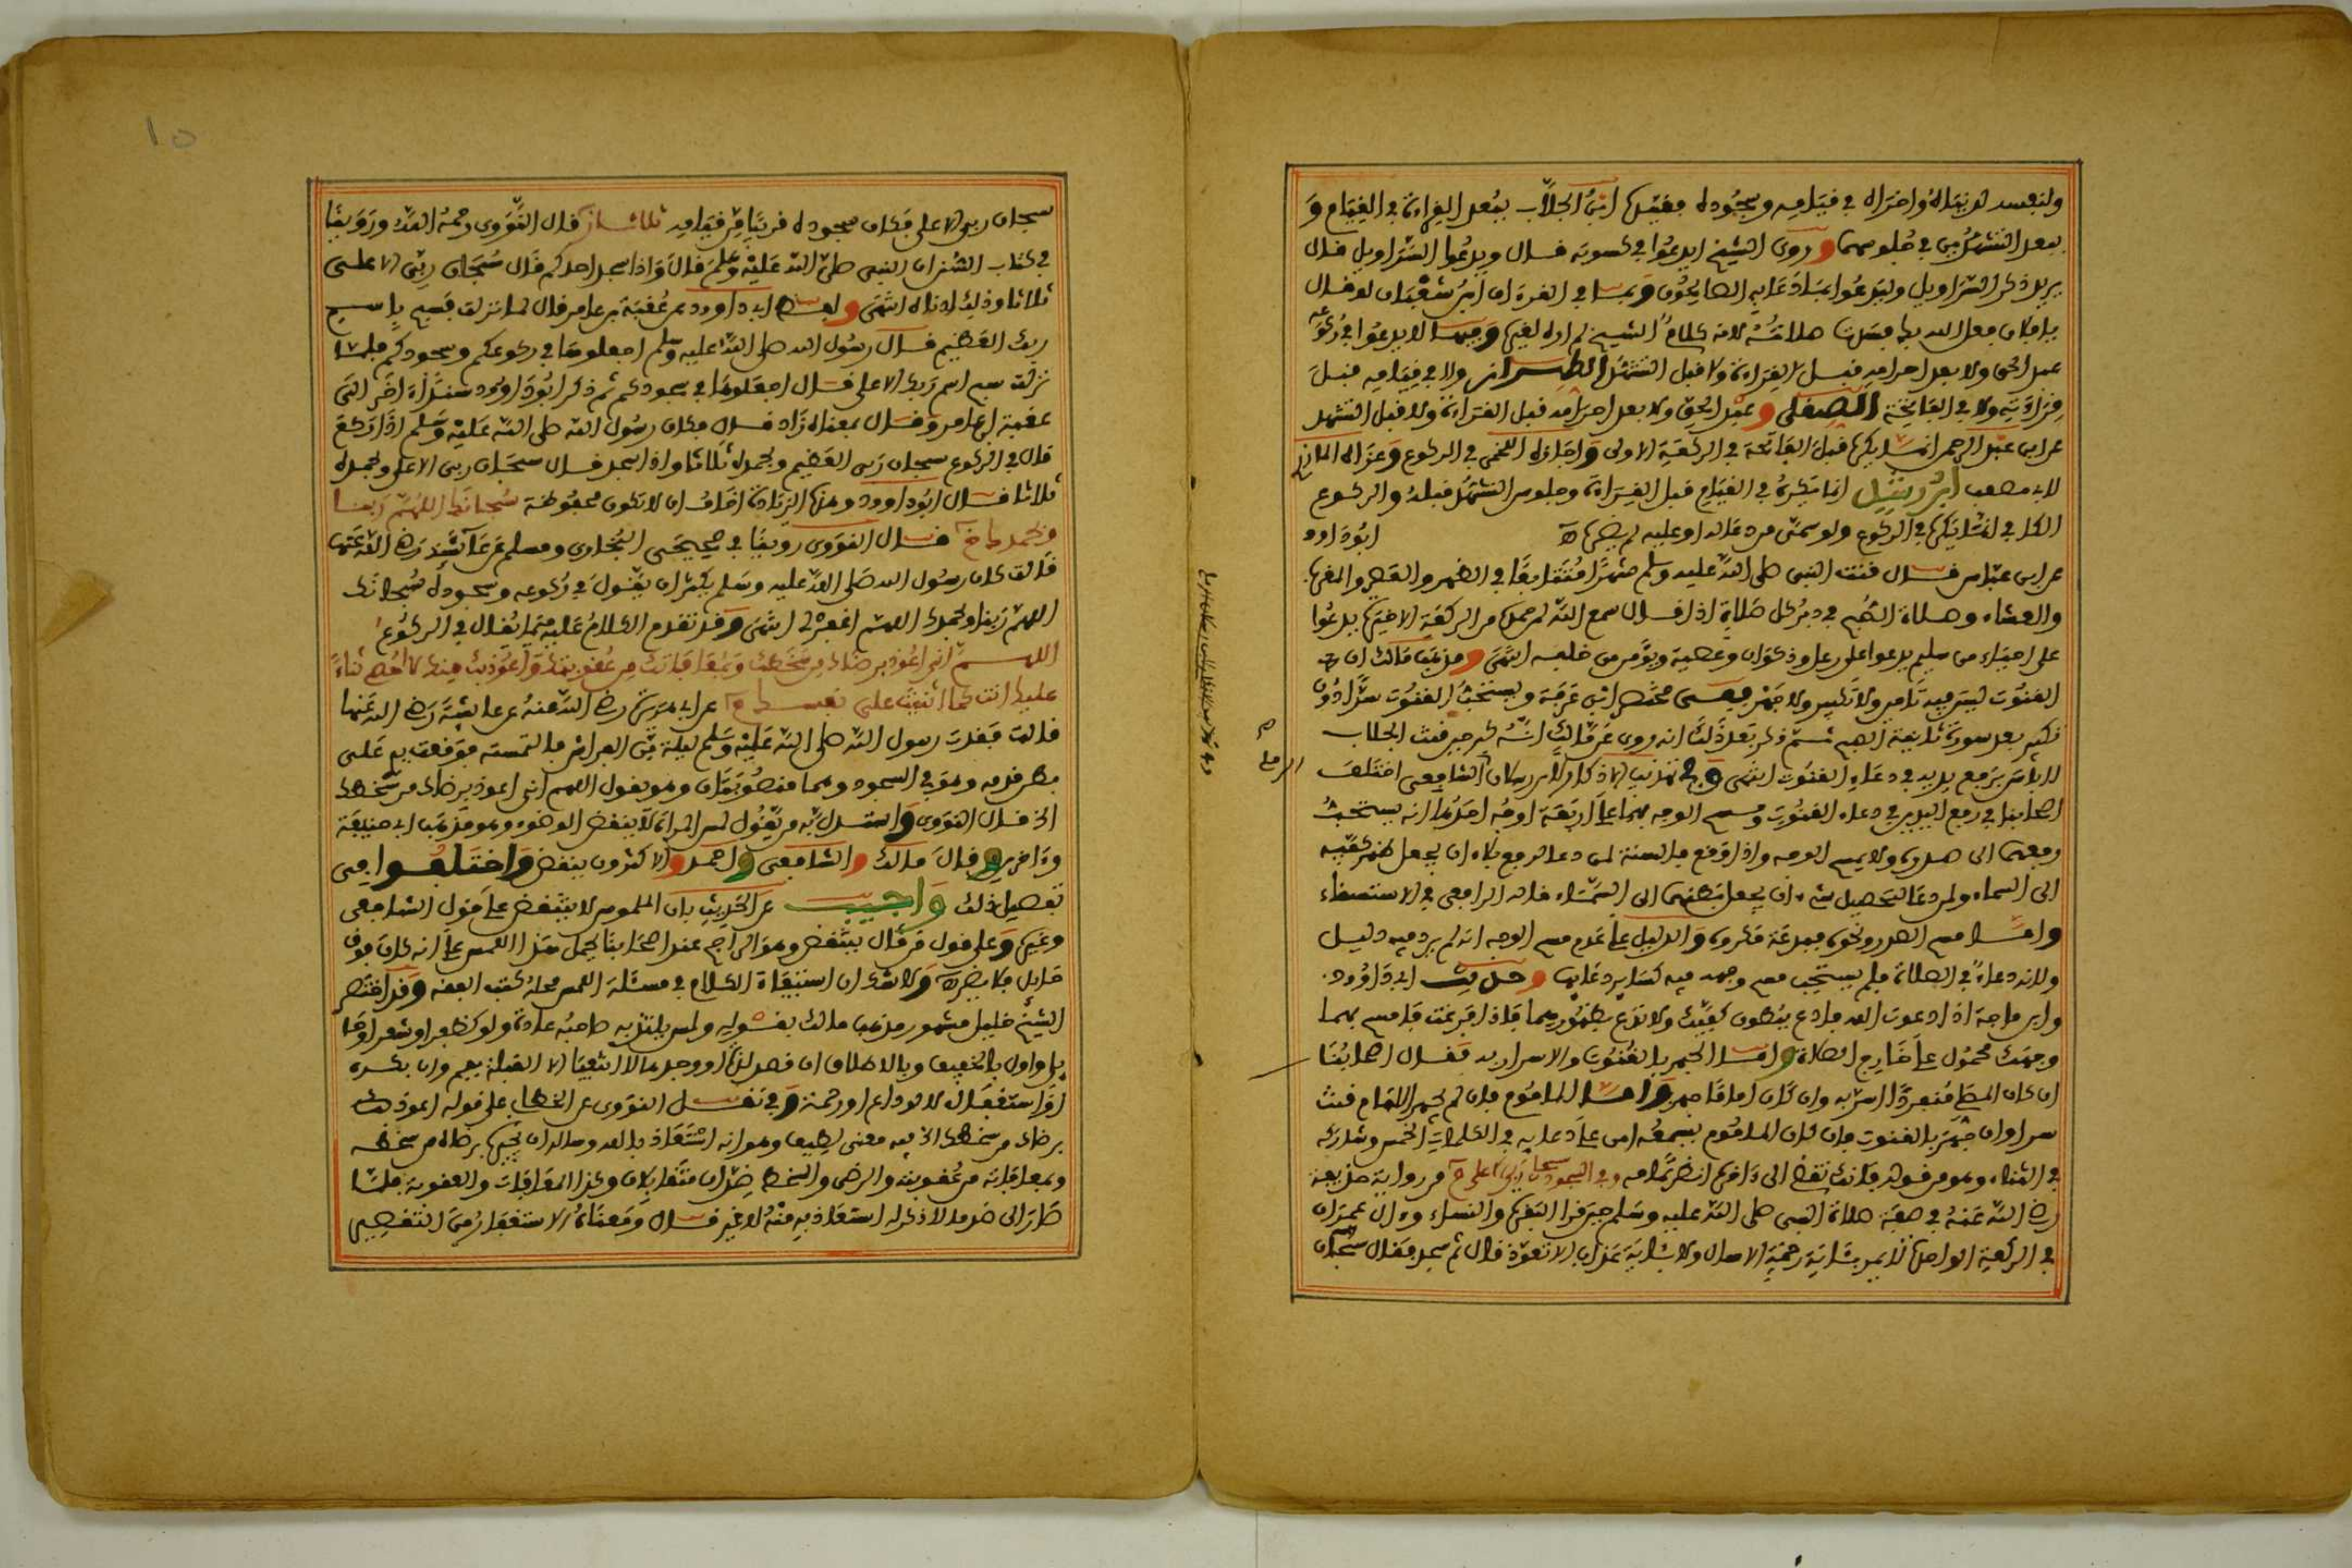 ولنفسه لدنياه واخراه في قيامه وسجوده فقيدها ابن الجلاب ببعد القراءة في القيام و
بعد التشهد من جلوسهما وروى الشيخ ايدعوا في كسوته قال ويدعوا السراويل قال
يريد ذكر السراويل وليدعوا بما دعا به الصالحون وبما في القرءان ابن شعبان لو قال
يا فلان فعل الله بك فسدت صلاته لانه كلام الشيخ لم اره لغيره وفيها لا يدعوا في ركوعه
عبد الحق ولا بعد احرامه قبل القراءة ولا قبل التشهد الطراز ولا في قيامه قبل
قراءته ولا في الفاتحة الصقلي وعبد الحق ولا بعد احرامه قبل القراءة ولا قبل التشهد
عن ابن عبد الرحمن انما يكره قبل الفاتحة في الركعة الاولى واجازه اللخمي في الركوع وعزاه المازري
لابي مصعب ابن رشد انما يكره في القيام قبل القراءة وجلوس التشهد قبله والركوع
الكل في انما يكره في الركوع ولو سمى من دعا له او عليه لم يضره ابو داوود
عن ابن عباس قال قنت النبي صلى الله عليه وسلم شهرا متتابعا في الظهر والعصر والمغرب
والعشاء وصلاة الصبح في دبر كل صلاة اذا قال سمع الله لمن حمده من الركعة الاخيرة يدعوا
على احياء من سليم يدعوا على رعل وذكوان وعصية ويؤمن من خلفه انتهى ومذهب مالك ان
القنوت ليس فيه تامين ولا تكبير ولا جهر ففي مختصر ابن عرفة ويستحب القنوت سرا دون
تكبير بعد سورة ثانية الصبح ثم ذكر بعد ذلك انه روى عن مالك انه كبر حين قنت الجلاب
لا باس برفع يديه في دعاء القنوت انتهى وفي تهذيب الاذكار لابن رسلان الشافعي اختلف
اصحابنا في رفع اليدين في دعاء القنوت ومسح الوجه بهما على اربعة اوجه احدها انه يستحب
رفعهما الى صدره ولا يمسح الوجه واذا رفع فالسنة لمن دعا لرفع بلاء ان يجعل ظهر كفيه
الى السماء ولمن دعا لتحصيل شيء ان يجعل بطنهما الى السماء قاله الرافعي في الاستسقاء
واما مسح الصدر ونحوه فبدعة مكروه والدليل على عدم مسح الوجه انه لم يرد فيه دليل
ولانه دعاء في الصلاة فلم يستحب مسح وجهه فيه كسائر دعائها وحديث ابي داوود
وابن ماجة اذا دعوت الله فادع ببطون كفيك ولا تدع بظهورهما فاذا فرغت فامسح بهما
وجهك محمول على خارج الصلاة واما الجهر بالقنوت والاسرار به فقال اصحابنا
ان كان المصلي منفردا اسر به وان كان اماما جهر واما الماموم فان لم يجهر الامام قنت
سرا وان جهر بالقنوت فان كان الماموم يسمعه امن على دعائه في الكلمات الخمس وشاركه
في الثناء وهو من قوله فانك تقضي الى ءاخره انظر تمامه وفي السجود سبحان ربي الاعلى من رواية حذيفة
رضي الله عنه في صفة صلاة النبي صلى الله عليه وسلم حين قرا البقرة والنساء وءال عمران
في الركعة الواحدة لا يمر بئاية رحمة الا سال ولا بئاية عذاب الا تعوذ قال ثم سجد فقال سبحان
سبحان ربي الاعلى فكان سجوده قريبا من قيامه قال النووي رحمه الله وروينا
في كتاب السنن ان النبي صلى الله عليه وسلم قال واذا سجد احدكم قال سبحان ربي الاعلى
ثلاثا وذلك ادناه انتهى ولفظ ابي داوود عن عقبة بن عامر قال لما نزلت فسبح باسم
ربك العظيم قال رسول الله صلى الله عليه وسلم اجعلوها في ركوعكم وسجودكم فلما
نزلت سبح اسم ربك الاعلى قال اجعلوها في سجودكم ثم ذكر ابو داوود سندا اخر الى
عقبة بن عامر وقال بمعناه زاد قال فكان رسول الله صلى الله عليه وسلم اذا ركع
قال في الركوع سبحان ربي العظيم وبحمده ثلاثا واذا سجد قال سبحان ربي الاعلى وبحمده
ثلاثا قال ابو داوود وهذه الزيادة اخاف ان لا تكون محفوظة سبحانك اللهم ربنا
وبحمدك قال النووي روينا في صحيحي البخاري ومسلم عن عائشة رضي الله عنها
قالت كان رسول الله صلى الله عليه وسلم يكثر ان يقول في ركوعه وسجوده سبحانك
اللهم ربنا وبحمدك اللهم اغفر لي انتهى وقد تقدم الكلام عليه فيما يقال في الركوع
اللهم اني اعوذ برضاك من سخطك وبمعافاتك من عقوبتك واعوذ بك منك لا احصي ثناء
عليك انت كما اثنيت على نفسك عن ابي هريرة رضي الله عنه عن عائشة رضي الله عنها
قالت فقدت رسول الله صلى الله عليه وسلم ليلة من الفراش فالتمسته فوقعت يدي على
بطن قدمه وهو في السجود وهما منصوبتان وهو يقول اللهم اني اعوذ برضاك من سخطك
الخ قال النووي واستدل به من يقول لمس المراة لا ينقض الوضوء وهو مذهب ابي حنيفة
وءاخرين وقال مالك والشافعي واحمد والاكثرون ينقض واختلفوا في
تفصيل ذلك واجيب عن الحديث بان الملموس لا ينتقض على قول الشافعي
وغيره وعلى قول من قال ينتقض وهو الراجح عند اصحابنا يحمل هذا اللمس على انه كان فوق
حايل فلا يضره ولا شك ان استيفاء الكلام في مسئلة اللمس محله كتب الفقه وقد اختصر
الشيخ خليل مشهور مذهب مالك بقوله ولمس يلتذ به صاحبه عادة ولو كظفر او شعر او حا
يل واول بالخفيف وبالاطلاق ان قصد لذة او وجدها لا انتفيا الا القبلة بفم وان بكره
او استغفال لا لوداع او رحمة وفي نقل النووي عن الخطابي على قوله اعوذ بك
برضاك من سخطك الخ فيه معنى لطيف وهو انه استعاذ بالله وساله ان يجيره برضاه من سخطه
وبمعافاته من عقوبته والرضى والسخط ضدان متقابلان وكذا المعافات والعقوبة فلما
صار الى ضد ما لا ذكر له استعاذ به منه لا غير قال ومعناه الاستغفار من التقصير